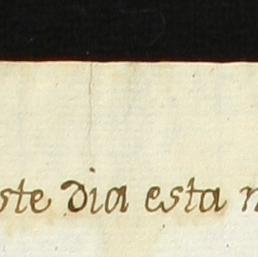 ste dia esta